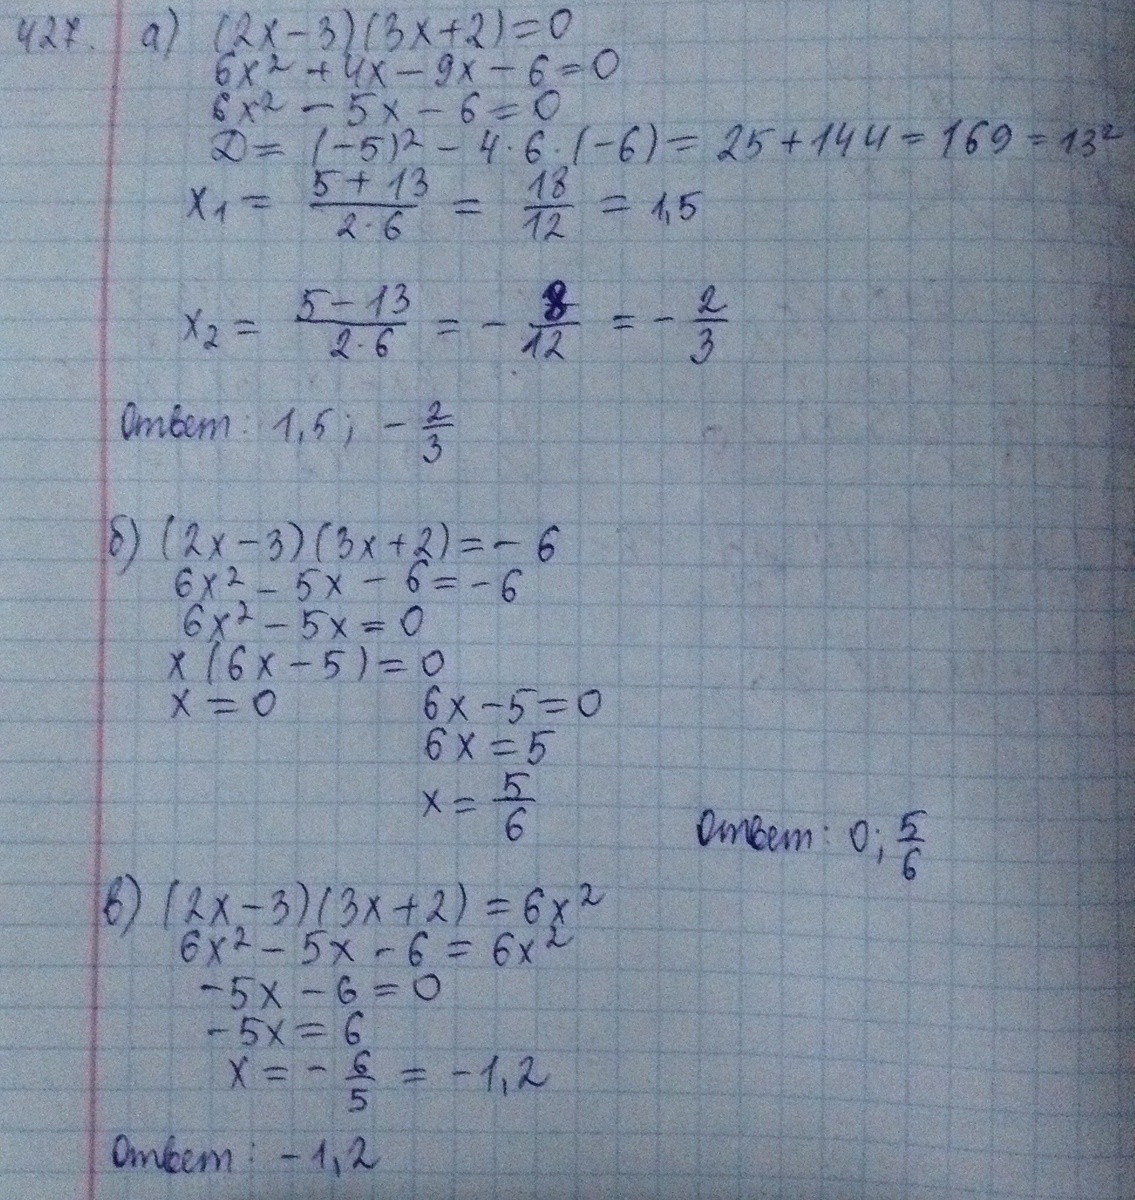 427. а) (2x-3)(3x+2)=0
6x² + 4x - 9x - 6 = 0
6x² - 5x - 6 = 0
D = (-5)² - 4·6·(-6) = 25 + 144 = 169 = 13²
x₁ = (5 + 13)/(2·6) = 18/12 = 1,5
x₂ = (5 - 13)/(2·6) = - 8/12 = - 2/3
Ответ: 1,5; - 2/3
б) (2x-3)(3x+2) = - 6
6x² - 5x - 6 = - 6
6x² - 5x = 0
x(6x - 5) = 0
x = 0 6x - 5 = 0
6x = 5
x = 5/6
Ответ: 0; 5/6
в) (2x-3)(3x+2) = 6x²
6x² - 5x - 6 = 6x²
-5x - 6 = 0
-5x = 6
x = - 6/5 = -1,2
Ответ: -1,2